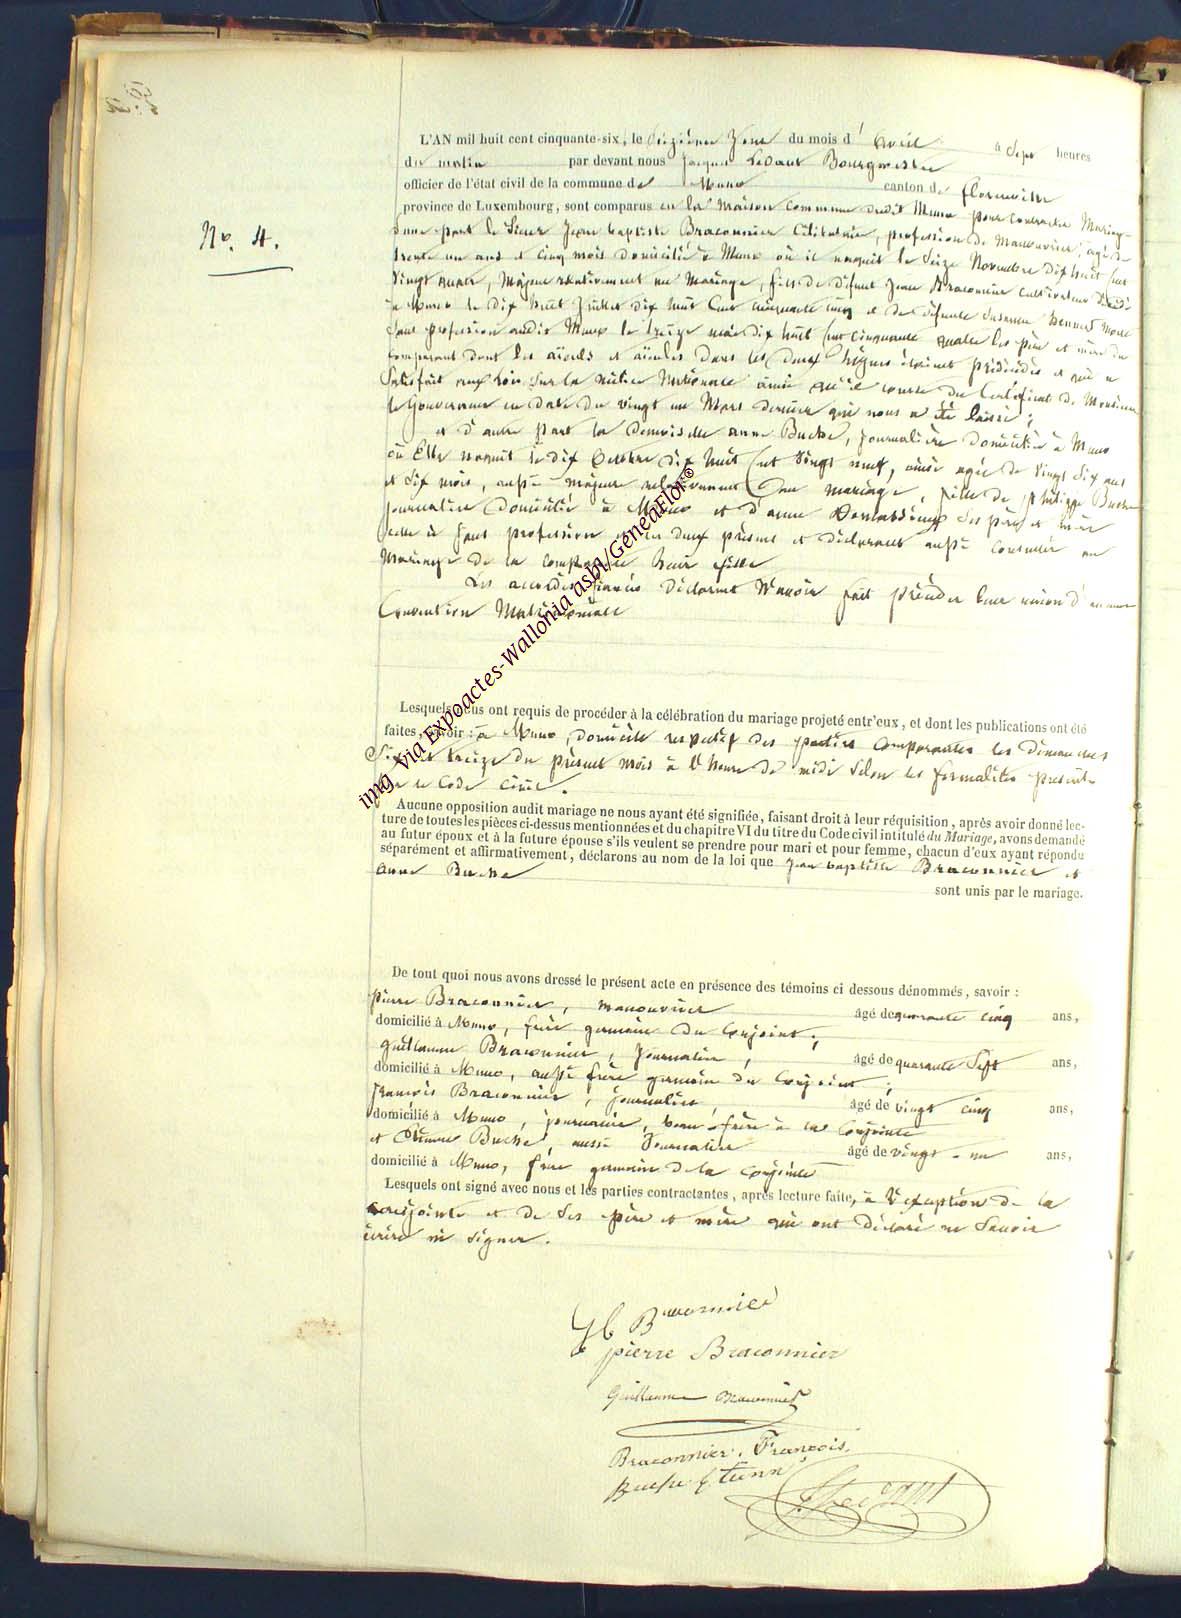 No. 4.
L'AN mil huit cent cinquante-six, le seizième jour du mois d'avril à sept heures
du matin par devant nous Jacques Bourgmestre
officier de l'état civil de la commune de Muno canton de florenville
province de Luxembourg, sont comparus en la Maison Commune dudit Muno pour contracter Mariage
d'une part le Sieur Jean baptiste Braconnier Célibataire, profession de Manouvrier, agé de
trente un ans et cinq mois domicilié à Muno où il naquit le Seize Novembre dix huit cent
Vingt quatre, Majeur relativement au Mariage, fils de défunt Jean Braconnier cultivateur décédé
à Muno le dix huit Juillet dix huit cent cinquante cinq et de défunte Susanne morte
sans profession audit Muno le treize mai dix huit cent cinquante quatre les père et mère du
comparant dont les aïeuls et aïeules dans les deux lignes étaient prédécédés et qui a
Satisfait aux lois sur la milice Nationale ainsi qu'il conste du Certificat de Monsieur
le Gouverneur en date du vingt un Mars dernier qui nous a été laissé;
et d'autre part la Demoiselle anne Buche, journalière domiciliée à Muno
où Elle naquit le dix Octobre dix huit cent Vingt neuf, ainsi agée de Vingt Six ans
et Six mois, aussi majeure relativement au mariage, fille de philippe Buche
journalier domicilié à Muno et d'anne ses père et mère
celle-ci sans profession les deux présents et déclarant aussi consentir au
Mariage de la comparante leur fille
Les accordés fiancés déclarent n'avoir fait précéder leur union d'aucune
Convention Matrimoniale
Lesquels nous ont requis de procéder à la célébration du mariage projeté entr'eux, et dont les publications ont été
faites, savoir : à Muno, domicile respectif des parties comparantes les dimanches
Six et treize du présent mois à l'heure de midi selon les formalités prescrites
par le Code civil.
Aucune opposition audit mariage ne nous ayant été signifiée, faisant droit à leur réquisition, après avoir donné lec-
ture de toutes les pièces ci-dessus mentionnées et du chapitre VI du titre du Code civil intitulé du Mariage, avons demandé
au futur époux et à la future épouse s'ils veulent se prendre pour mari et pour femme, chacun d'eux ayant répondu
séparément et affirmativement, déclarons au nom de la loi que Jean baptiste Braconnier et
anne Buche
sont unis par le mariage.
De tout quoi nous avons dressé le présent acte en présence des témoins ci dessous dénommés, savoir :
pierre Braconnier, manouvrier âgé de quarante cinq ans,
domicilié à Muno, frère germain du Conjoint;
guillaume Braconnier, Journalier, âgé de quarante Sept ans,
domicilié à Muno, aussi frère germain du Conjoint;
françois Braconnier, journalier, âgé de vingt cinq ans,
domicilié à Muno, journalier, beau-frère à la Conjointe
et Etienne Buche, aussi Journalier âgé de vingt-un ans,
domicilié à Muno, frère germain de la Conjointe
Lesquels ont signé avec nous et les parties contractantes, après lecture faite, à l'exception de la
conjointe et de ses père et mère qui ont déclaré ne Savoir
écrire ni signer.
Jb Braconnier
pierre Braconnier
Guillaume Braconnier
Braconnier. François.
Buche Etienne
img via Expoactes-Wallonia asbl/GeneaFlor©